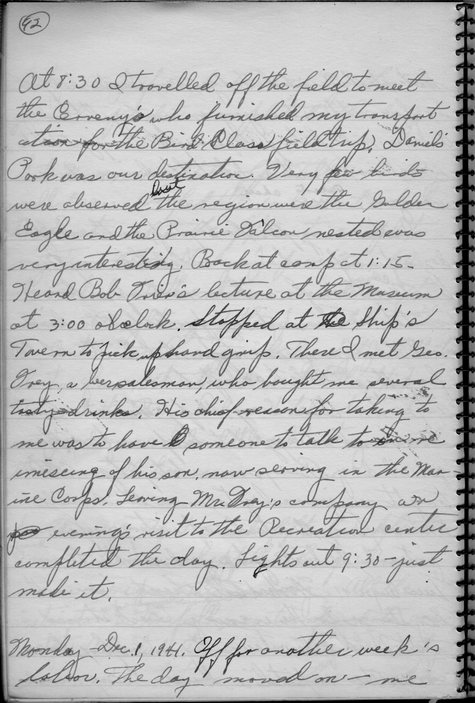 92
At 8:30 I travelled off the field to meet
the who furnished my transport
ation for the Bird Class field trip. Daniels
Park was our destination. Very few birds
were observed but the region were the Golden
Eagle and the Prairie Falcon nested was
very interesting. Back at camp at 1:15-
Heard Bob lecture at the Museum
at 3:00 o'clock. Stopped at the Ship's
Tavern to pick up hand grip. There I met Geo.
a salesman, who bought me several
drinks. His chief reason for taking to
me was to have someone to talk to
of his son, now serving in the Mar-
ine Corps. Leaving Mr. company an
evening's visit to the Recreation center
completed the day. Lights out 9:30 - just
made it.
Monday - Dec. 1, 1941. Off for another week's
labor. The day moved on - me